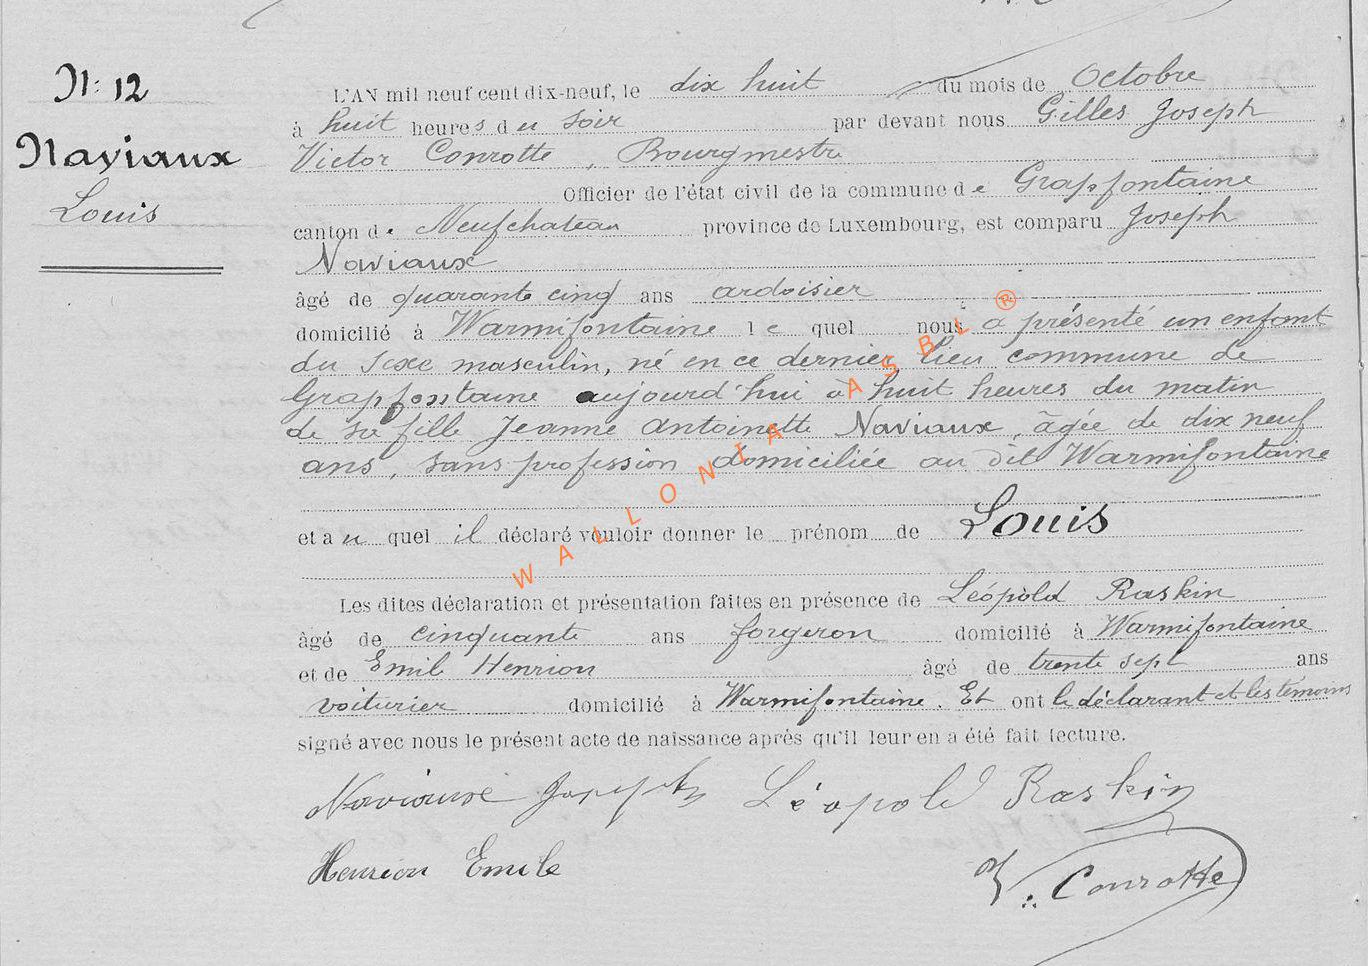 N: 12
Naviaux
Louis
L'AN mil neuf cent dix-neuf, le dix huit du mois de Octobre
à huit heures du soir par devant nous Gilles Joseph
Victor Conrotte, Bourgmestre
Officier de l'état civil de la commune de Grapfontaine
canton de Neufchateau province de Luxembourg, est comparu Joseph
Naviaux
âgé de quarante cinq ans ardoisier
domicilié à Warmifontaine le quel nous a présenté un enfant
du sexe masculin, né en ce dernier lieu commune de
Grapfontaine aujourd'hui à huit heures du matin
de sa fille Jeanne Antoinette Naviaux, âgée de dix neuf
ans, sans profession domiciliée au dit Warmifontaine
et au quel il déclaré vouloir donner le prénom de Louis
Les dites déclaration et présentation faites en présence de Léopold Raskin
âgé de cinquante ans forgeron domicilié à Warmifontaine
et de Emile Henrion âgé de trente sept ans
voiturier domicilié à Warmifontaine. Et ont le déclarant et les témoins
signé avec nous le présent acte de naissance après qu'il leur en a été fait lecture.
Naviaux Joseph Léopold Raskin
Henrion Emile V. Conrotte
WALLONIA ASBL ®